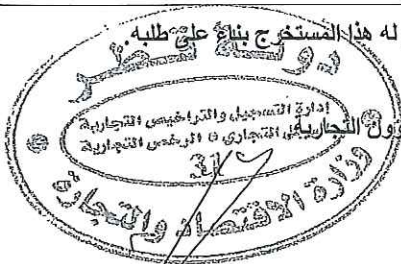 له هذا المستخرج بناء على طلبه.
دولة قطر
إدارة التسجيل والتراخيص التجارية
التجاري & الرخص التجارية
ؤون التجارية
31
وزارة الاقتصاد والتجارة